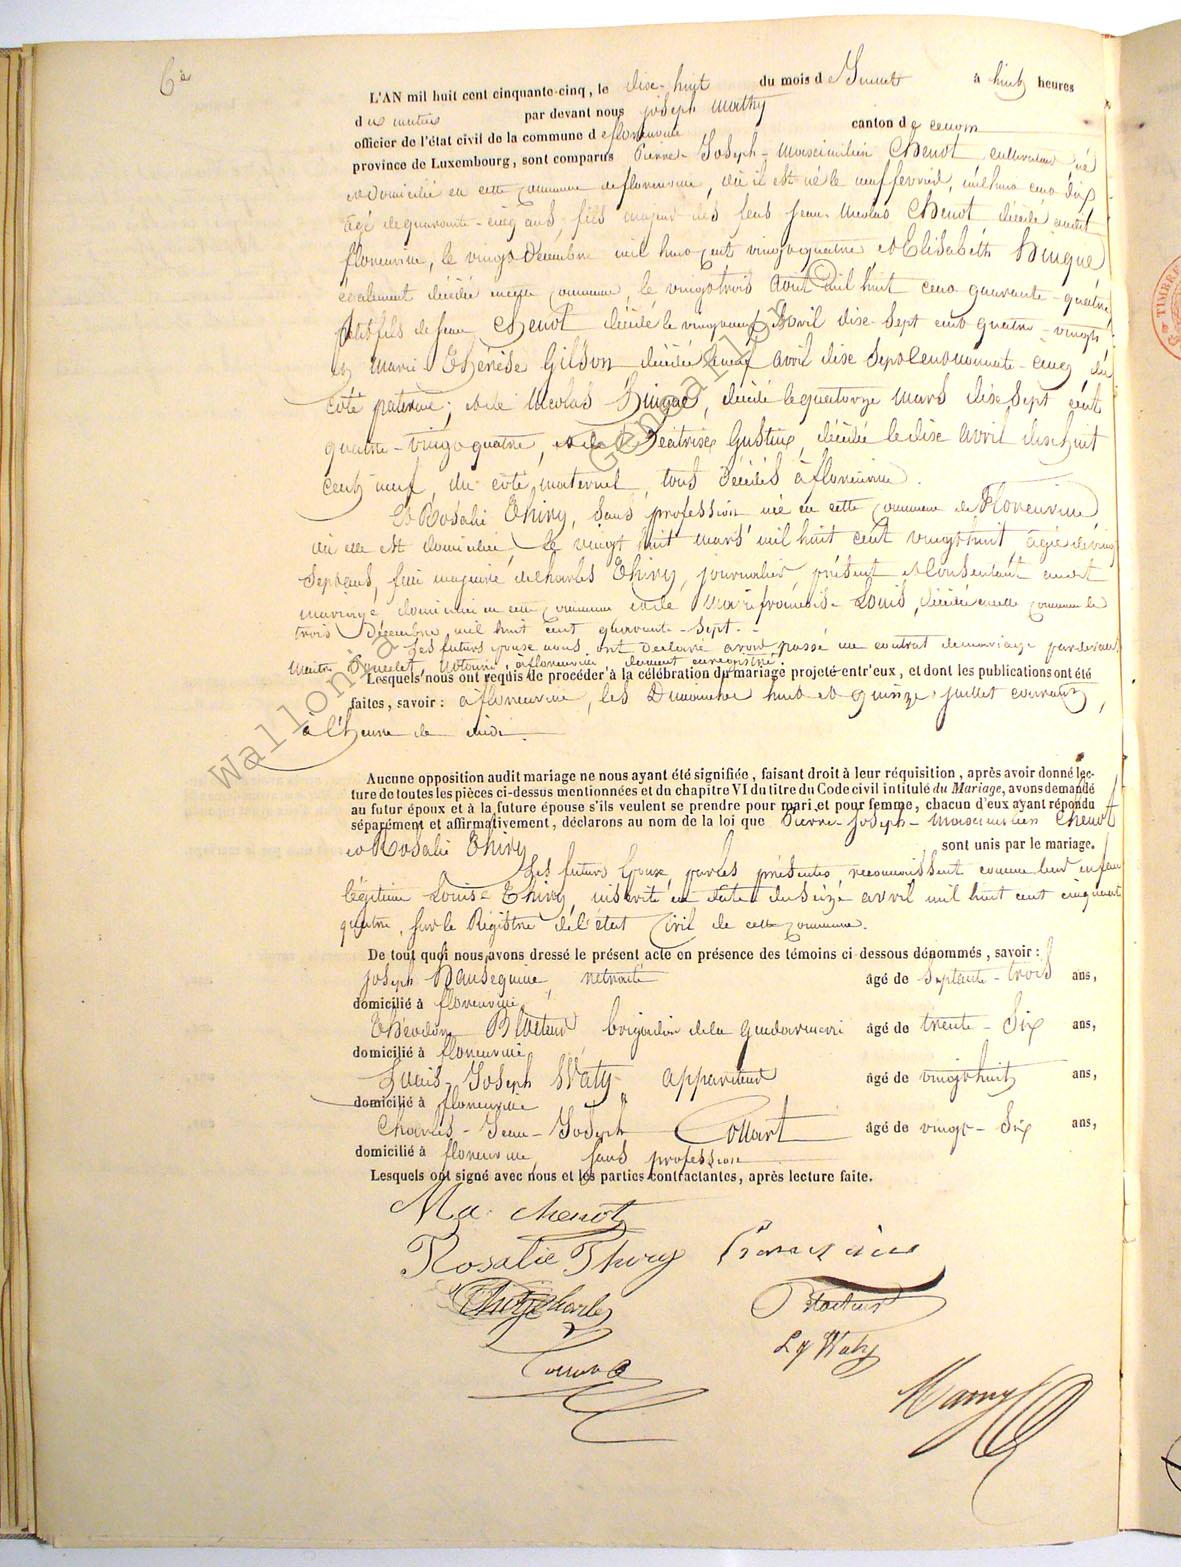 6e
L'AN mil huit cent cinquante-cinq, le dixe-huit du mois de Juillet à huit heures
du matin par devant nous joseph mathy
officier de l'état civil de la commune de florenville canton de
province de Luxembourg, sont comparus Pierre-Joseph-Maximilien Chenot, cultivateur, né
et domicilié en cette commune de florenville, où il est né le neuf fevrier, mil huit cent dix
agé de quarante-cinq ans, fils majeur des feus Jean-Nicolas Chenot décédé audit
florenville, le vingt Décembre mil huit cent vingt quatre, et Elisabeth Hinque
également décédée en cette commune, le vingt trois Août mil huit cent quarante-quatre,
petit fils de Jean Chenot décédé le Avril dixe-sept cent quatre-vingt
et Marie Thérèse Gilson décédée le neuf avril dixe sept cent nonante-cinq, du
côté paternel; et de Nicolas Hinque, décédé le quatorze Mars dixe sept cent
quatre-vingt quatre, et de Béatrixe Gustin, décédée le dixe avril dixe huit
cent neuf, du côté maternel, tous Décédés à florenville.
Et Rosalie Thiry, sans profession née en cette commune de Florenville,
où elle est domiciliée, le vingt huit mars mil huit cent vingt huit, âgée de vingt
sept ans, fille majeure, de Charles Thiry, journalier, présent et consentant audit
mariage domicilié en cette commune et de Marie françoise Louis, décédée en cette commune le
trois Décembre mil huit cent quarante-sept.-
Les futurs epoux nous ont déclaré avoir passé un contrat de mariage par devant
Maitre notaire, à florenville, dument enregistré.
Lesquels nous ont requis de procéder à la célébration du mariage projeté entr'eux, et dont les publications ont été
faites, savoir: à florenville, les Dimanches huit et quinze juillet courant,
à l'heure de midi
Aucune opposition audit mariage ne nous ayant été signifiée, faisant droit à leur réquisition, après avoir donné lec-
ture de toutes les pièces ci-dessus mentionnées et du chapitre VI du titre du Code civil intitulé du Mariage, avons demandé
au futur époux et à la future épouse s'ils veulent se prendre pour mari et pour femme, chacun d'eux ayant répondu
séparément et affirmativement, déclarons au nom de la loi que Pierre-Joseph-Maximilien Chenot
et Rosalie Thiry sont unis par le mariage.
Les futurs Epoux, par les présentes, reconnoissent comme leur enfant
légitime Louise Thiry, inscrite en date du seize avril mil huit cent cinquante
quatre, sur le Régistre de l'état Civil de cette commune.
De tout quoi nous avons dressé le présent acte en présence des témoins ci-dessous dénommés, savoir:
joseph retraité âgé de septante-trois ans,
domicilié à florenville
Théodore brigadier de la gendarmerie âgé de trente-six ans,
domicilié à florenville
Louis-Joseph Waty appariteur âgé de vingt huit ans,
domicilié à florenville
Charles-Jean-Joseph Collart âgé de vingt-six ans,
domicilié à florenville sans profession
Lesquels ont signé avec nous et les parties contractantes, après lecture faite.
Ma. chenot
Rosalie Thiry
Thiry Charles
LJ Waty
Wallonia © Genealogy
TIMBRE